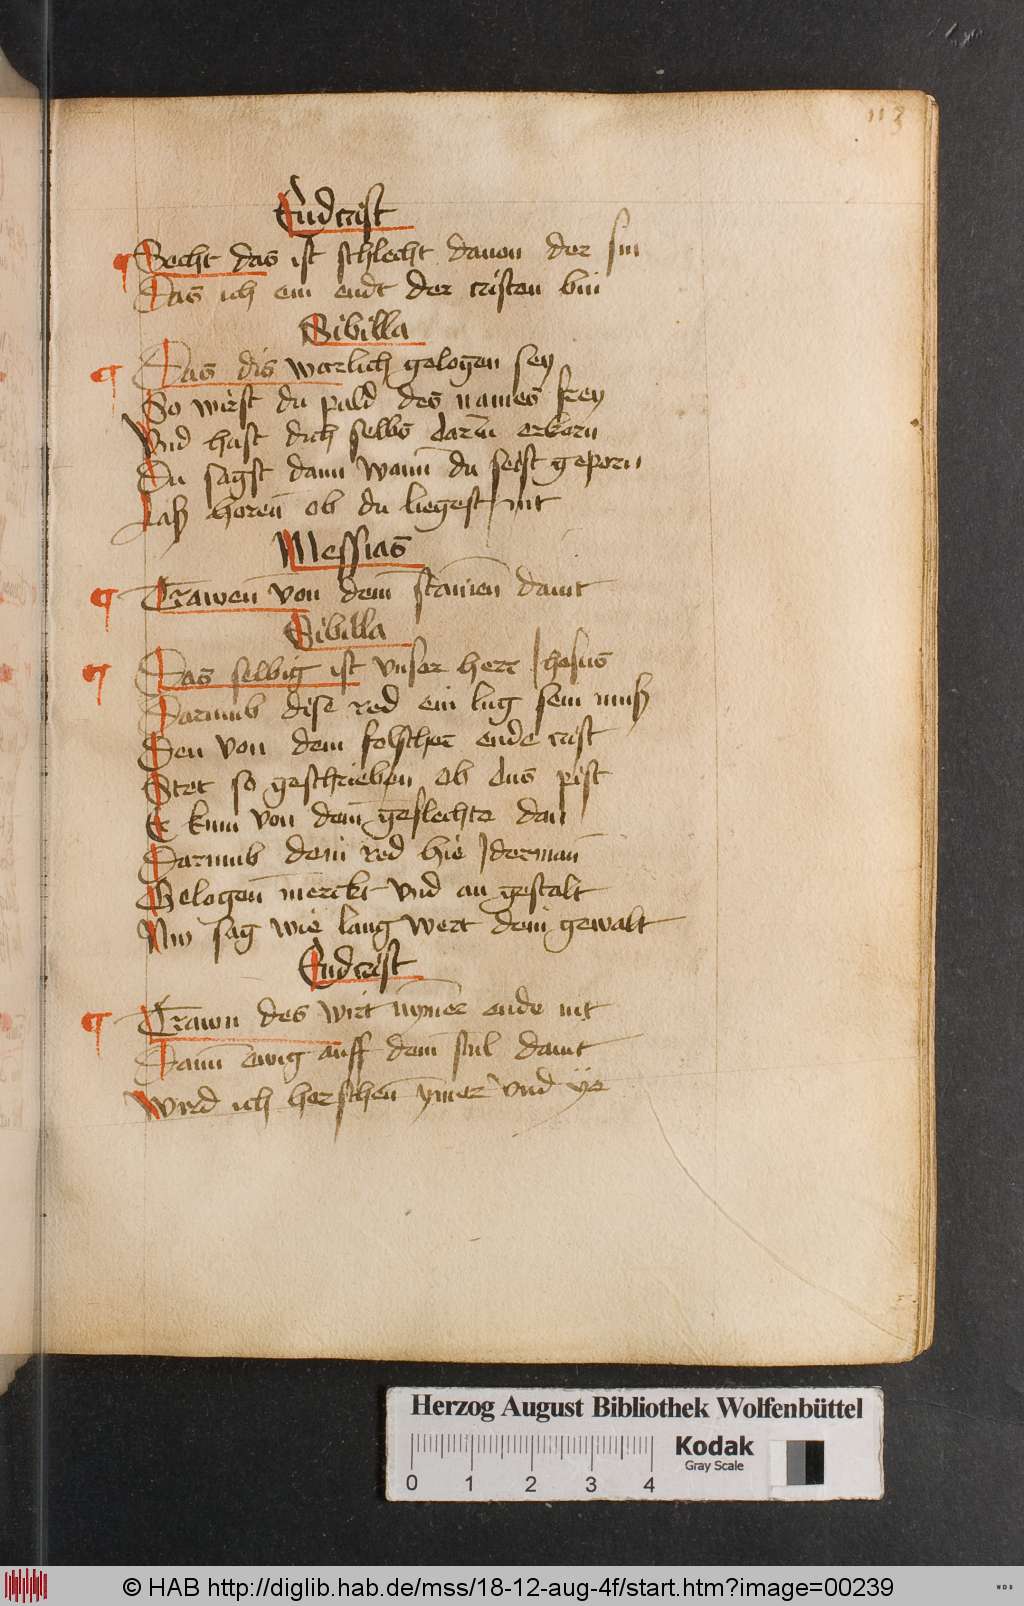 113
Endcrist
Secht das ist schlecht dauon der sin
Das ich ein endt der cristen bin
Sibilla
Das dis warlich gelogen sey
So wirst du pald des names frey
Vnd hast dich selbs darin erkorn
Du sagst dann wann du seist geporn
Laß horen ob du liegest nit
Messias
Trawen von dem stamen damit
Sibilla
Das selbig ist vnser herr Jhesus
Darumb dise red ein lug sein muß
Den von dem folscher ende crist
Stet so geschrieben ob dus pist
Er kum von dem geslechte dan
Darumb dein red hie Jderman
Gelogen merckt vnd an gestalt
Nw sag wie lang wert dein gewalt
Endcrist
Trawn des wirt nymer ende nit
Dann ewig auff dem stul damit
Wird ich herschen ymer vnd ye
Herzog August Bibliothek Wolfenbüttel
Kodak
Gray Scale
0 1 2 3 4
© HAB http://diglib.hab.de/mss/18-12-aug-4f/start.htm?image=00239